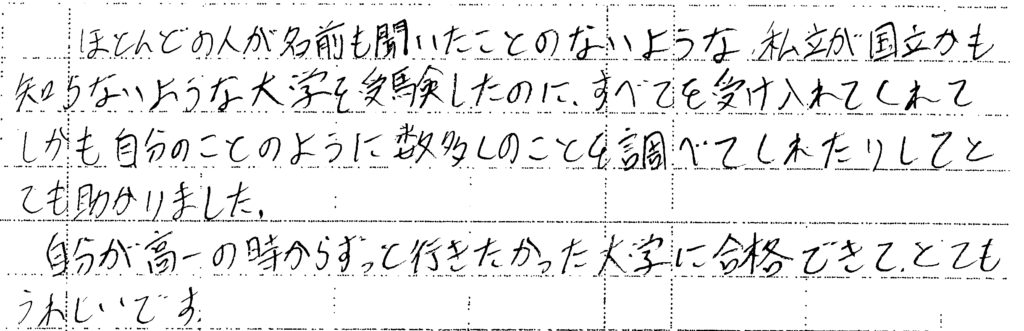 ほとんどの人が名前も聞いたことのないような、私立が国立かも
知らないような大学を受験したのに、すべてを受け入れてくれて
しかも自分のことのように数多くのことを調べてくれたりしてと
ても助かりました。
自分が高一の時からずっと行きたかった大学に合格できて、とても
うれしいです。